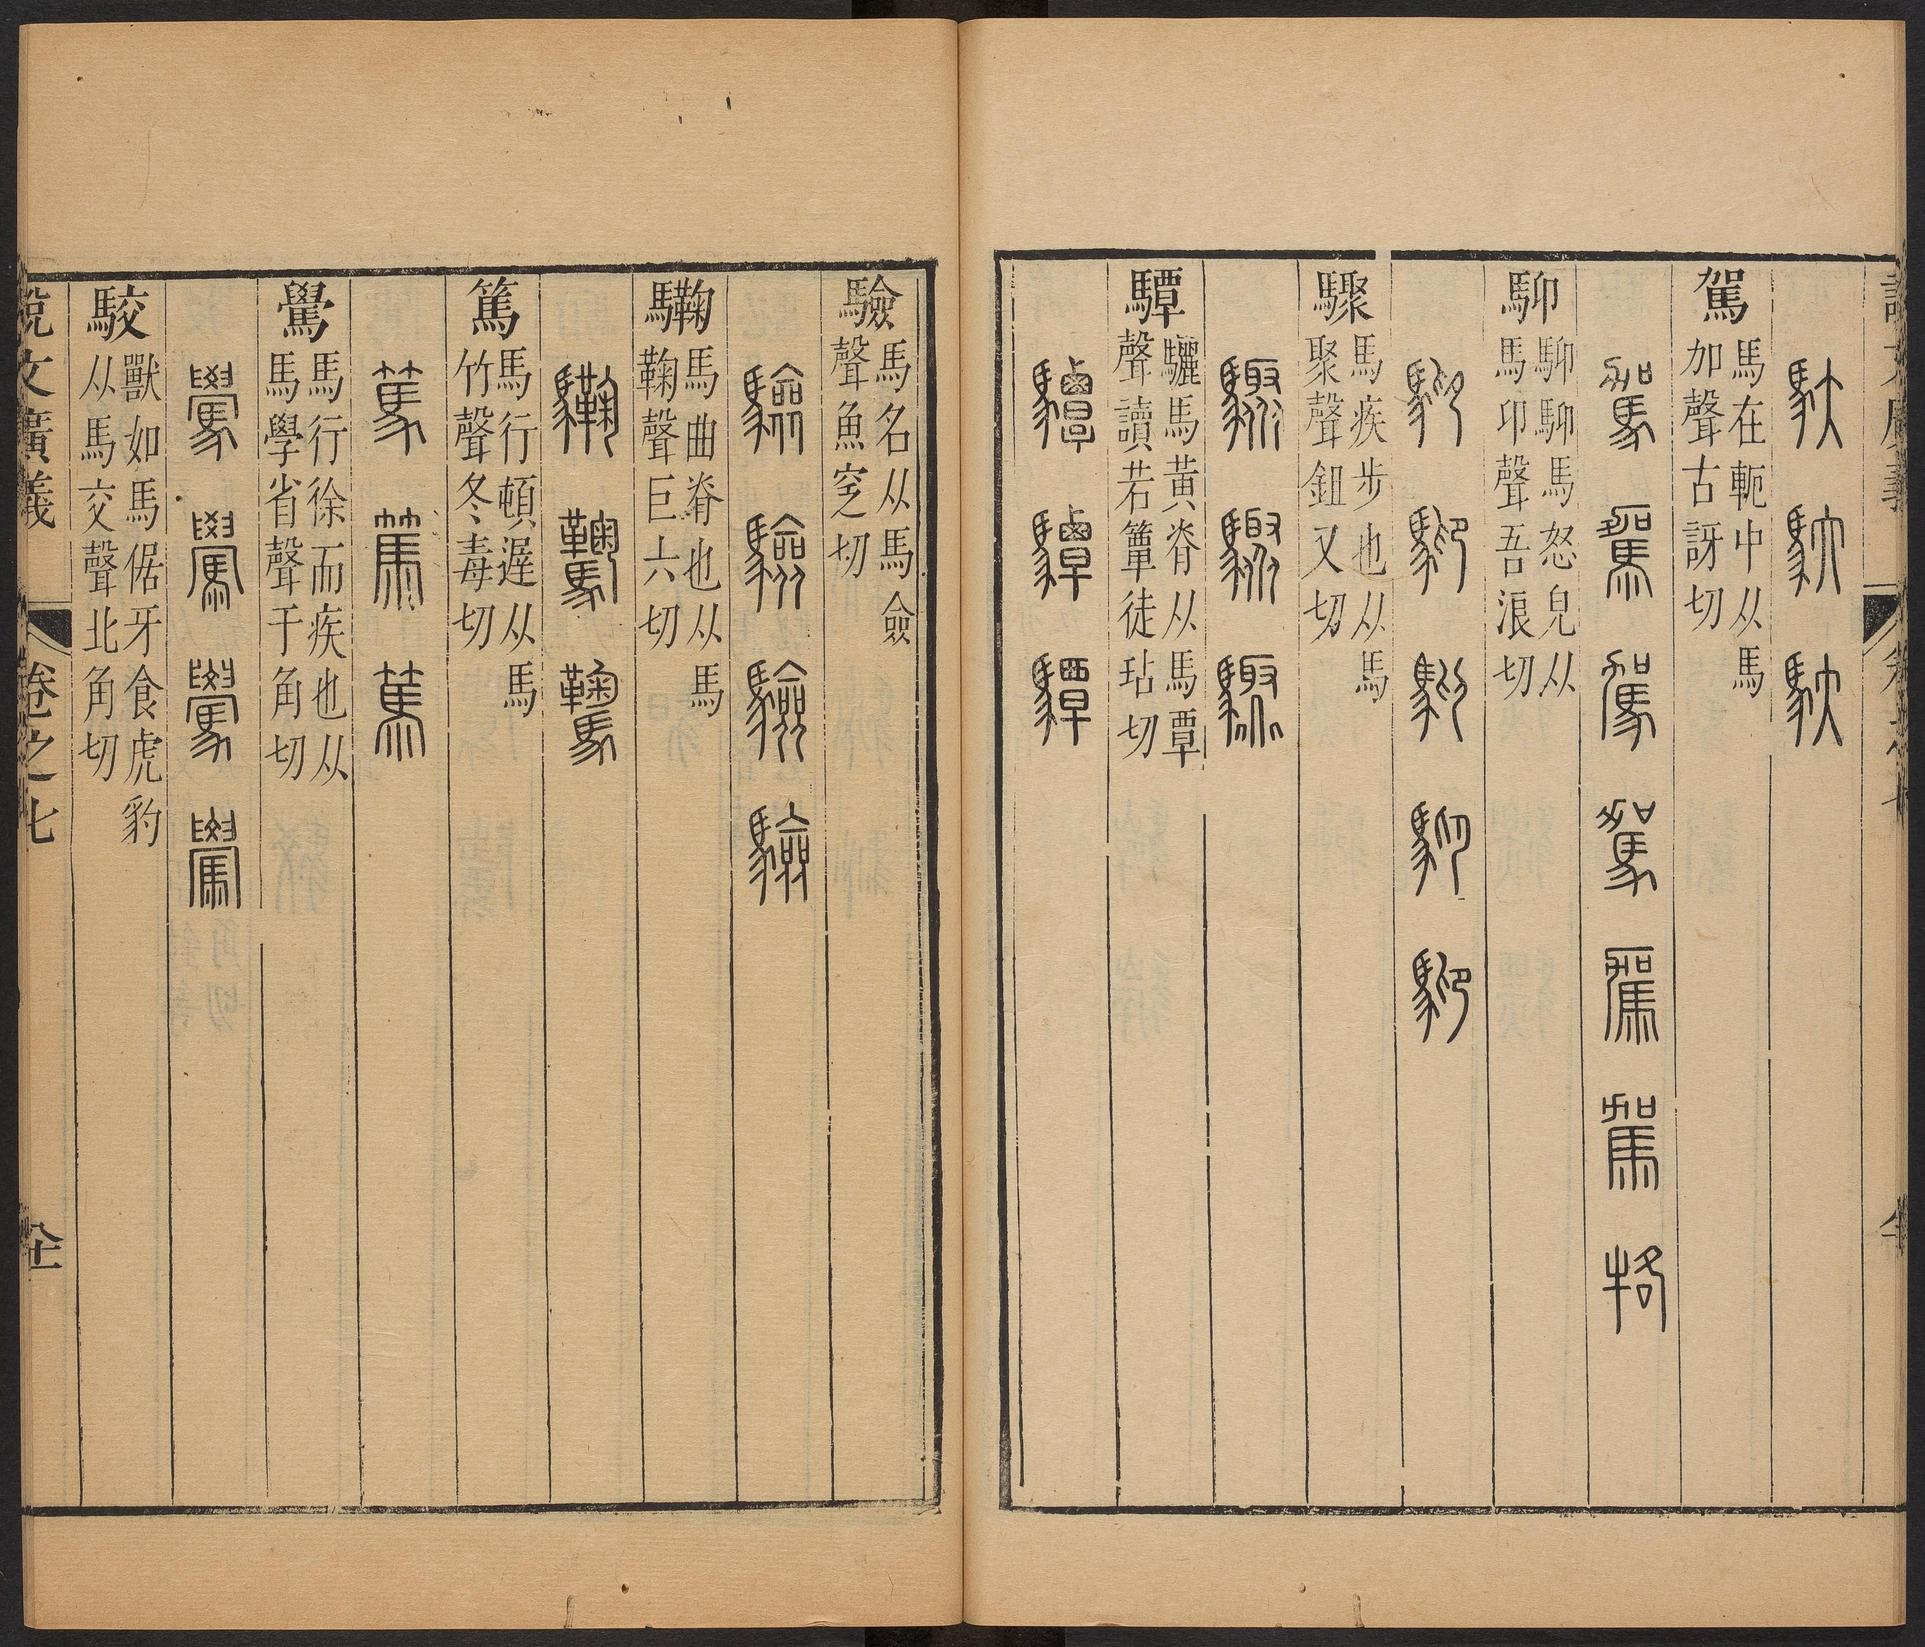 駕 馬在軛中从馬
加聲古訝切
駕 駕 駕 駕 駕 駕 𤙑
䭹 䭹䭹馬怒皃从
馬卬聲吾浪切
䭹 䭹 䭹 䭹 䭹
驟 馬疾步也从馬
聚聲鉏又切
驟 驟 驟
驔 驪馬黃脊从馬覃
聲讀若簟徒玷切
驔 驔 驔
驗 馬名从馬僉
聲魚窆切
驗 驗 驗 驗
馬曲脊也从馬
鞠聲巨六切
篤 馬行頓遟从馬
竹聲冬毒切
篤 篤 篤
鷽 馬行徐而疾也从
馬學省聲于角切
駮 獸如馬倨牙食虎豹
从馬交聲北角切
說文廣義
卷之七